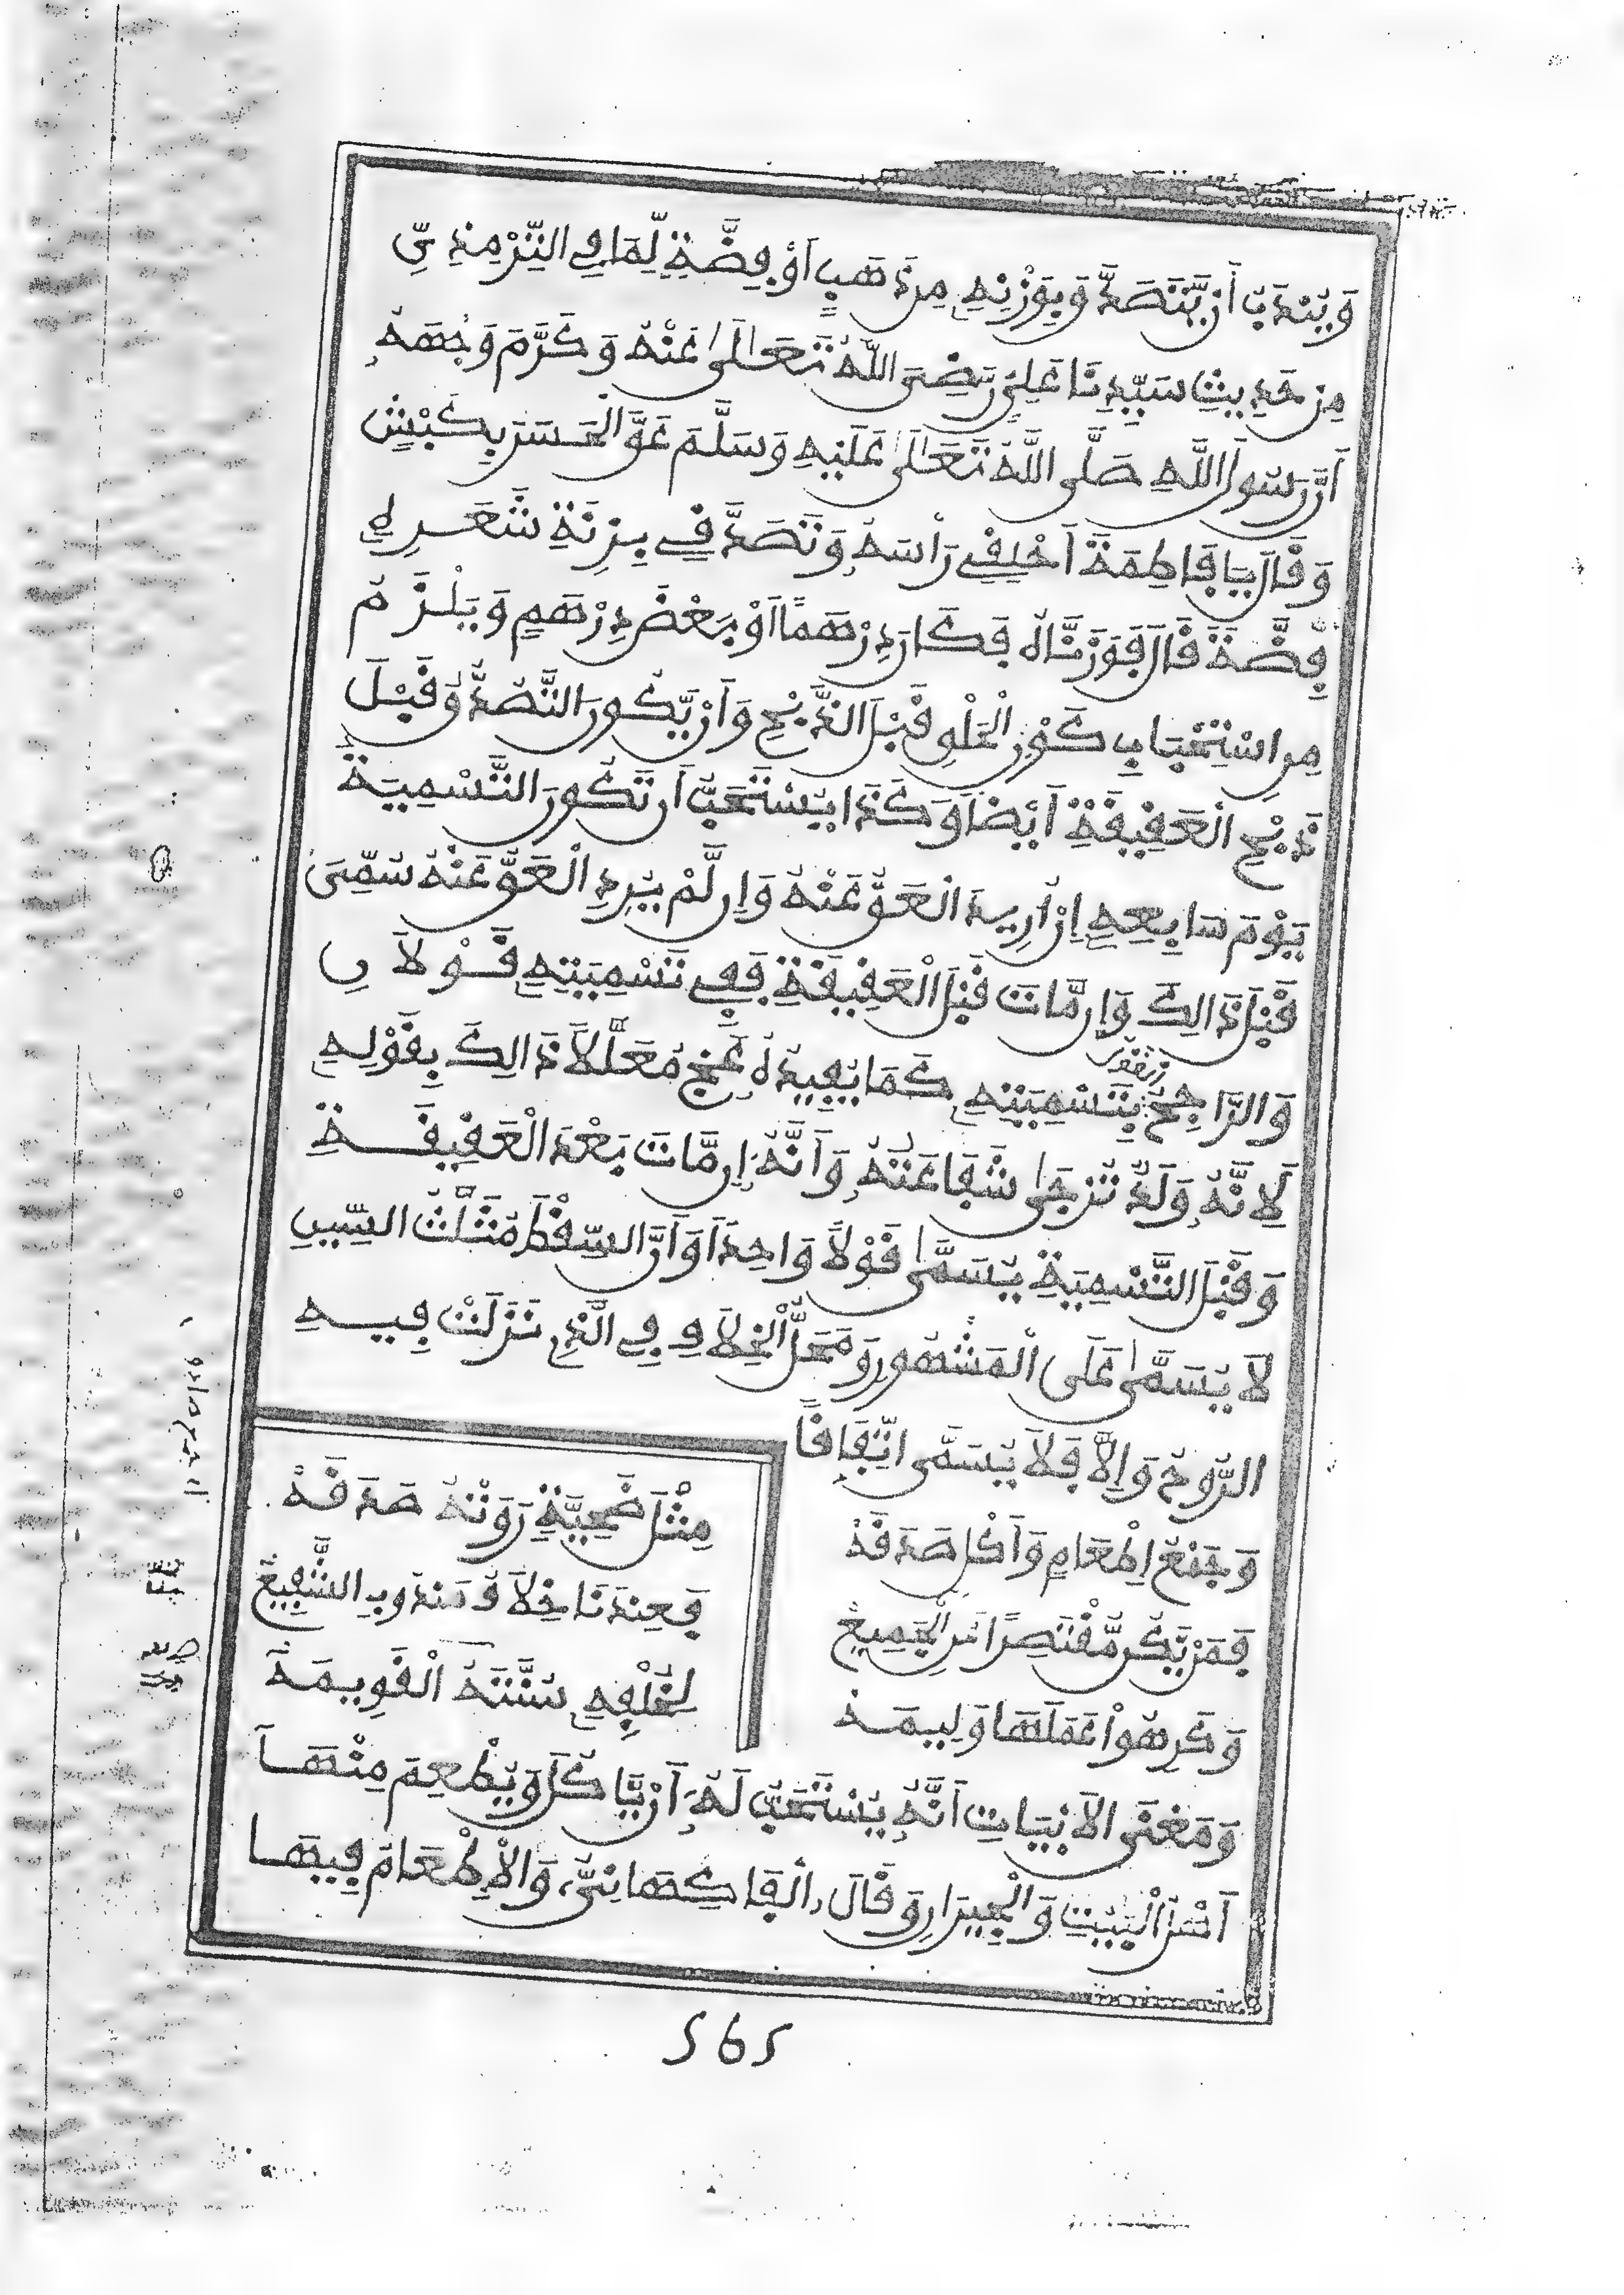 وَيُنْدَبُ أَن يَّتَصَدَّقَ بِوَزْنِهِ مِن ذَهَبٍ أَوْ فِضَّةٍ لِّمَا فِي التِّرْمِذِيِّ
مِنْ حَدِيثِ سَيِّدِنَا عَلِيٍّ رَّضِىَ اللَّهُ تَعَالَىٰ عَنْهُ وَكَرَّمَ وَجْهَهُ
أَنَّ رَسُولَ اللَّهِ صَلَّى اللَّهُ تَعَالَىٰ عَلَيْهِ وَسَلَّمَ عَقَّ الْحَسَنَ بِكَبْشٍ
وَقَالَ يَا فَاطِمَةُ احْلِقِي رَأْسَهُ وَتَصَدَّقِي بِزِنَةِ شَعَرِهِ
فِضَّةً قَالَ فَوَزَنَّاهُ فَكَانَ دِرْهَمًا اَوْ بَعْضَ دِرْهَمٍ وَيَلْزَمُ
مِنِ اسْتِحْبَابِ كَوْنِ الْحَلْقِ قَبْلَ الذَّبْحِ وَأَنْ يَّكُونَ التَّصَدُّقُ قَبْلَ
ذَبْحِ الْعَقِيقَةِ أَيْضًا وَكَذَا يُسْتَحَبُّ أَن تَكُونَ التَّسْمِيَةُ
يَوْمَ سَابِعِهِ إِنْ أُرِيدَ الْعَقُّ عَنْهُ وَإِن لَّمْ يُرِدِ الْعَقَّ عَنْهُ سُمِّىَ
قَبْلَ ذَالِكَ وَإِن مَّاتَ قَبْلَ الْعَقِيقَةِ فَفِي تَسْمِيَتِهِ قَوْلَانِ
وَالرَّاجِحُ تَسْمِيَتُهِ كَمَا يُفِيدُهُ عج مُعَلِّلًا ذَالِكَ بِقَوْلِهِ
لِأَنَّهُ وَلَدٌ تُرْجَىٰ شَفَاعَتُهُ وَأَنَّهُ إِن مَّاتَ بَعْدَ الْعَقِيقَةِ
وَقَبْلَ التَّسْمِيَةِ يُسَمَّىٰ قَوْلًا وَاحِدًا وَأَنَّ السِّقْطَ مُثَلَّثُ السِّينِ
لَا يُسَمَّىٰ عَلَى الْمَشْهُورِ وَمَحَلُّ الْخِلَافِ فِي الَّذِي نَزَلَتْ فِيهِ
الرُّوحُ وَإِلَّا فَلَا يُسَمَّى اتِّفَاقًا
وَجَمْعُ اِطْعَامٍ وَأَكْلٍ صَدَقَهْ
مِثْلَ ضَحِيَّةٍ رَوَتْهُ صَدَقَهْ
فَمَنْ يَّكُن مُّقْتَصِرًا مِنَ الْجَمِيعْ
فَعِنْدَنَا خِلَافُ مَنْدُوبِ الشَّفِيعْ
وَكَرِهُواْ عَمَلَهَا وَلِيمَهْ
لِخُلْفِهِ سُنَّتَهُ الْقَوِيمَهْ
وَمَعْنَى الْأَبْيَاتِ أَنَّهُ يُسْتَحَبُّ لَهُ أَنْ يَّاكُلَ وَيُطْعِمَ مِنْهَا
أَهْلَ الْبَيْتِ وَالْجِيرَانِ وَقَالَ الْفَاكِهَانِيُّ وَالْإِطْعَامُ فِيهَا
565